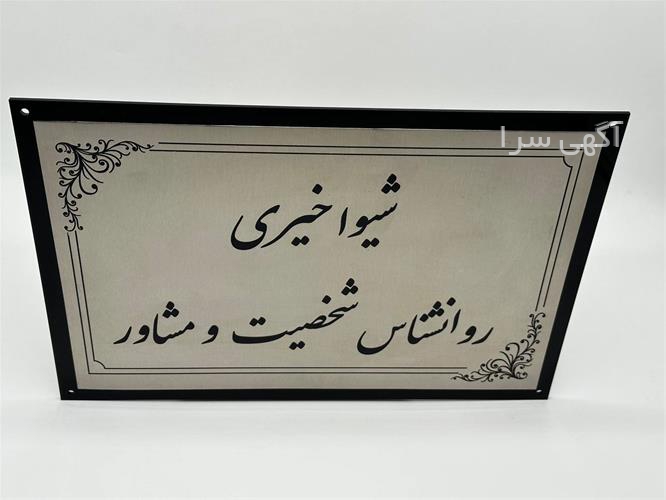 آگهی سرا
شیوا خیری
روانشناس شخصیت و مشاور